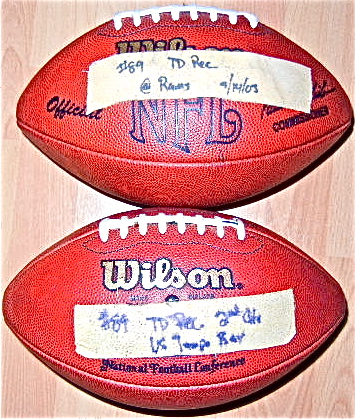 Wilson
#89 TD Rec
@ Rams 9/14/03
Official
NFL
COMMISSIONER
Wilson.
#89 TD Rec 2nd Qtr
VS Tampa Bay
National Football Conference